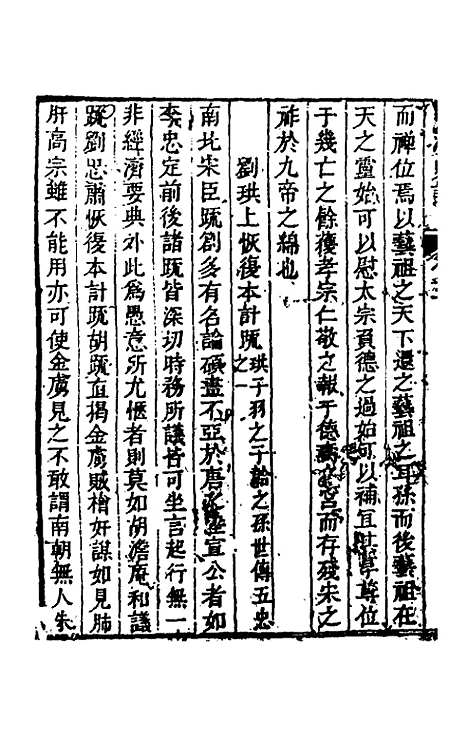 而禪位焉以藝祖之天下還之藝祖之耳孫而後藝祖在
天之靈始可以慰太宗負德之過始可以補且享尊位
于幾亡之餘獲孝宗仁敬之報于德壽宮而存殘朱之
祚於九帝之緜也
劉珙上恢復本計疏珙子羽之子韐之孫世傳五忠之一
南北宋臣疏劄多有名論碩畫不亞於唐陸宣公者如
李忠定前後諸疏皆深切時務所議皆可坐言起行無一
非經濟要典外此爲愚意所尤愜者則莫如胡澹庵和議
疏劉忠肅恢復本計疏胡疏直揭金虜賊檜奸謀如見肺
肝高宗雖不能用亦可使金虜見之不敢謂南朝無人朱